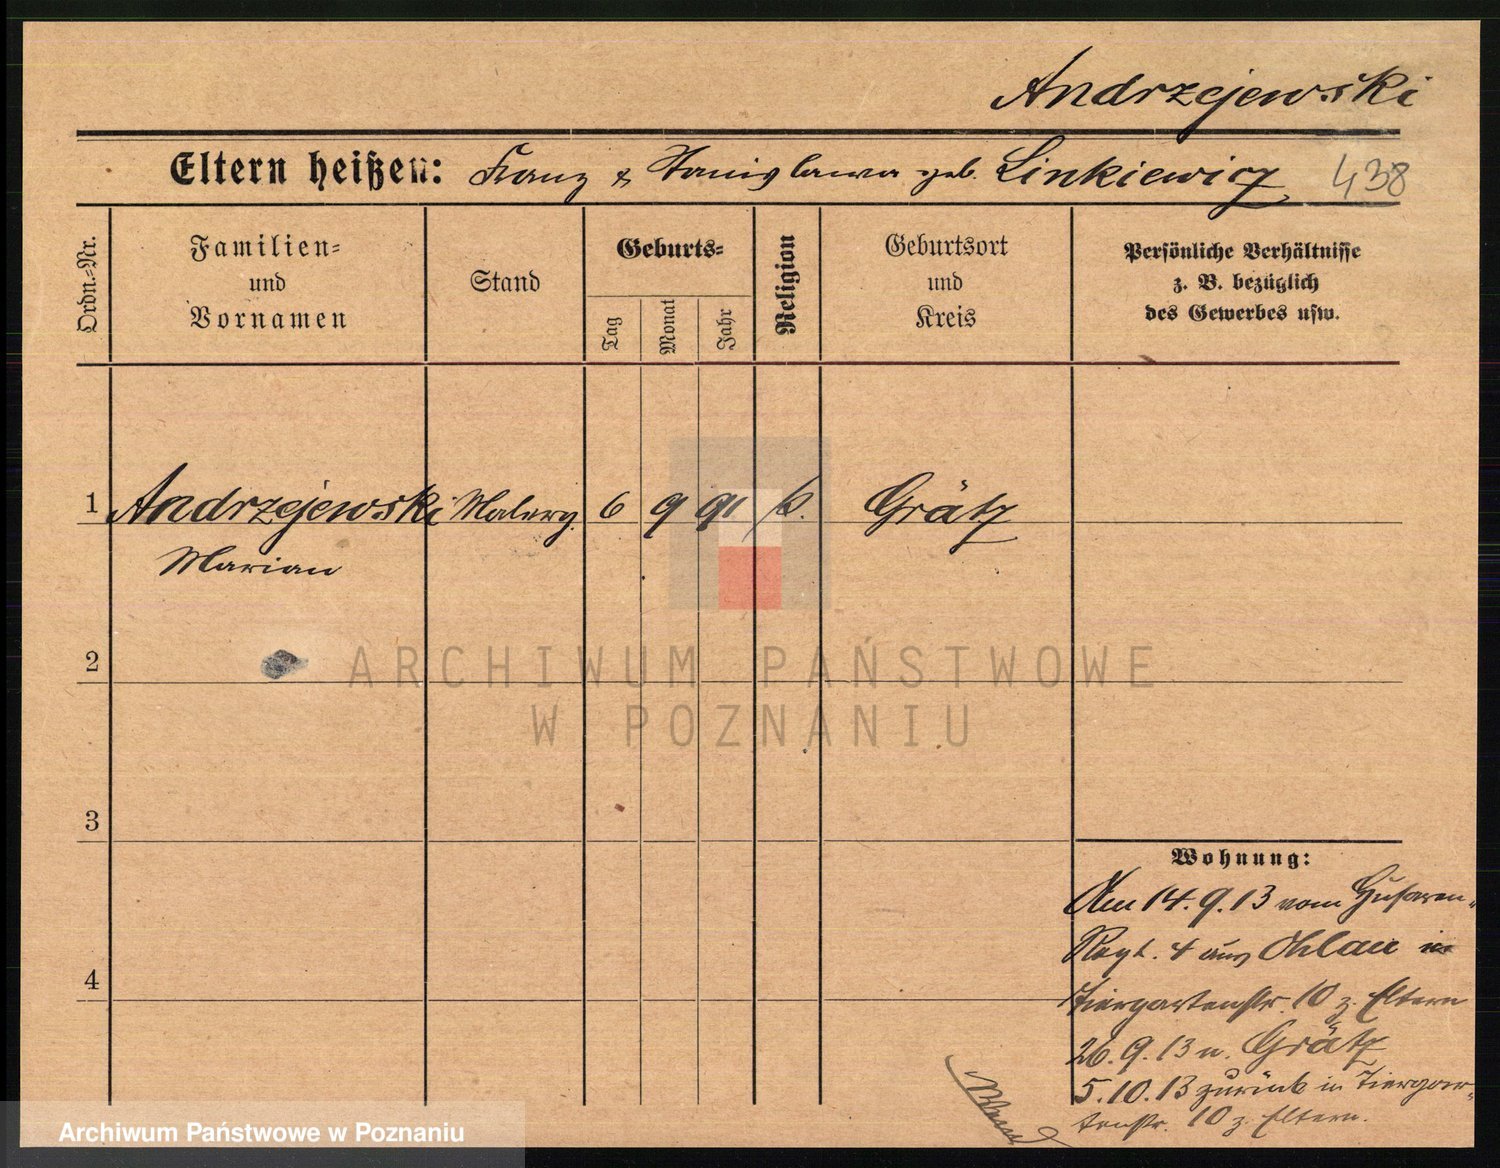 Andrzejewski
Eltern heißen: Franz & Stanislawa geb. Linkiewicz 438
Ordn.=Nr.
Familien=
und
Vornamen
Stand
Geburts=
Tag
Monat
Jahr
Religion
Geburtsort
und
Kreis
Persönliche Verhältnisse
z. B. bezüglich
des Gewerbes usw.
1 Andrzejewski Malerg. 6 9 91 k. Grätz
Marian
2
3
4
Wohnung:
Am 14.9.13 vom Husaren-
Regt. 4 aus Ohlau in
Tiergartenstr. 10 z. Eltern
26.9.13 n. Grätz
5.10.13 zurück in Tiergar-
tenstr. 10 z. Eltern.
ARCHIWUM PAŃSTWOWE
W POZNANIU
Archiwum Państwowe w Poznaniu